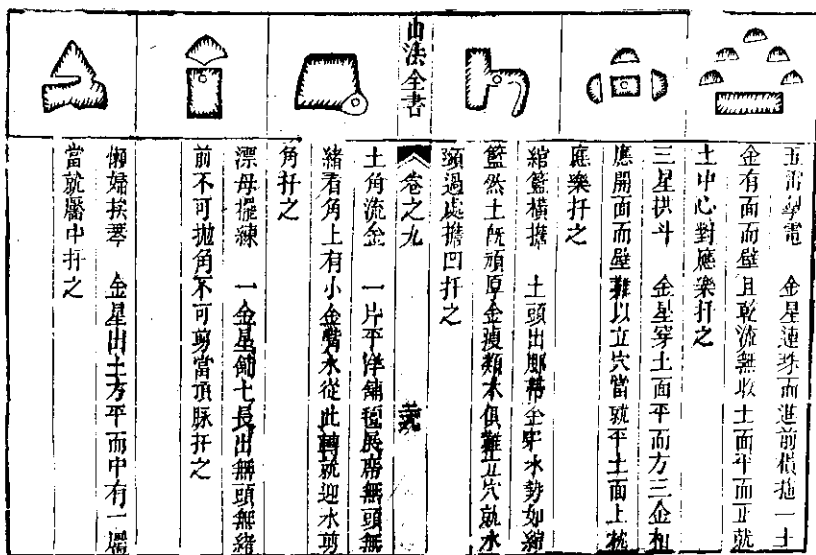 五雷掣電　金星連珠而進前橫拖一土
金有面而壁且乾流無收土面平而正就
土中心對應樂扦之
三星拱斗　金星穿土面平而方三金相
應開面而壁難以立穴當就平土面上挑
庭樂扦之
綰籃橫擔　土頭出腳帶金穿水勢如綰
籃然土旣頑厚金瘦類木俱難立穴就水
頭過處擔凹扦之
山法全書
卷之九
土角流金　一片平洋鋪氈展席無頭無
緒看角上有小金嘴水從此轉就迎水剪
角扦之
漂母擺練　一金星飾七長出無頭無緒
前不可拋角不可剪當頂脉扦之
懶婦挨琴　金星出土方平而中有一靨
當就靨中扦之